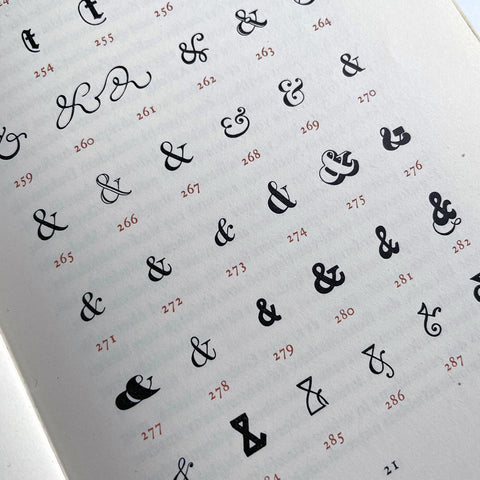 & &
254 255 256
& & & & &
259 260 261 262 263 264
& & & & & &
265 266 267 268 269 270
& & & & & &
271 272 273 274 275 276
& & & & & &
277 278 279 280 281 282
& & & & &
285 286 287
21